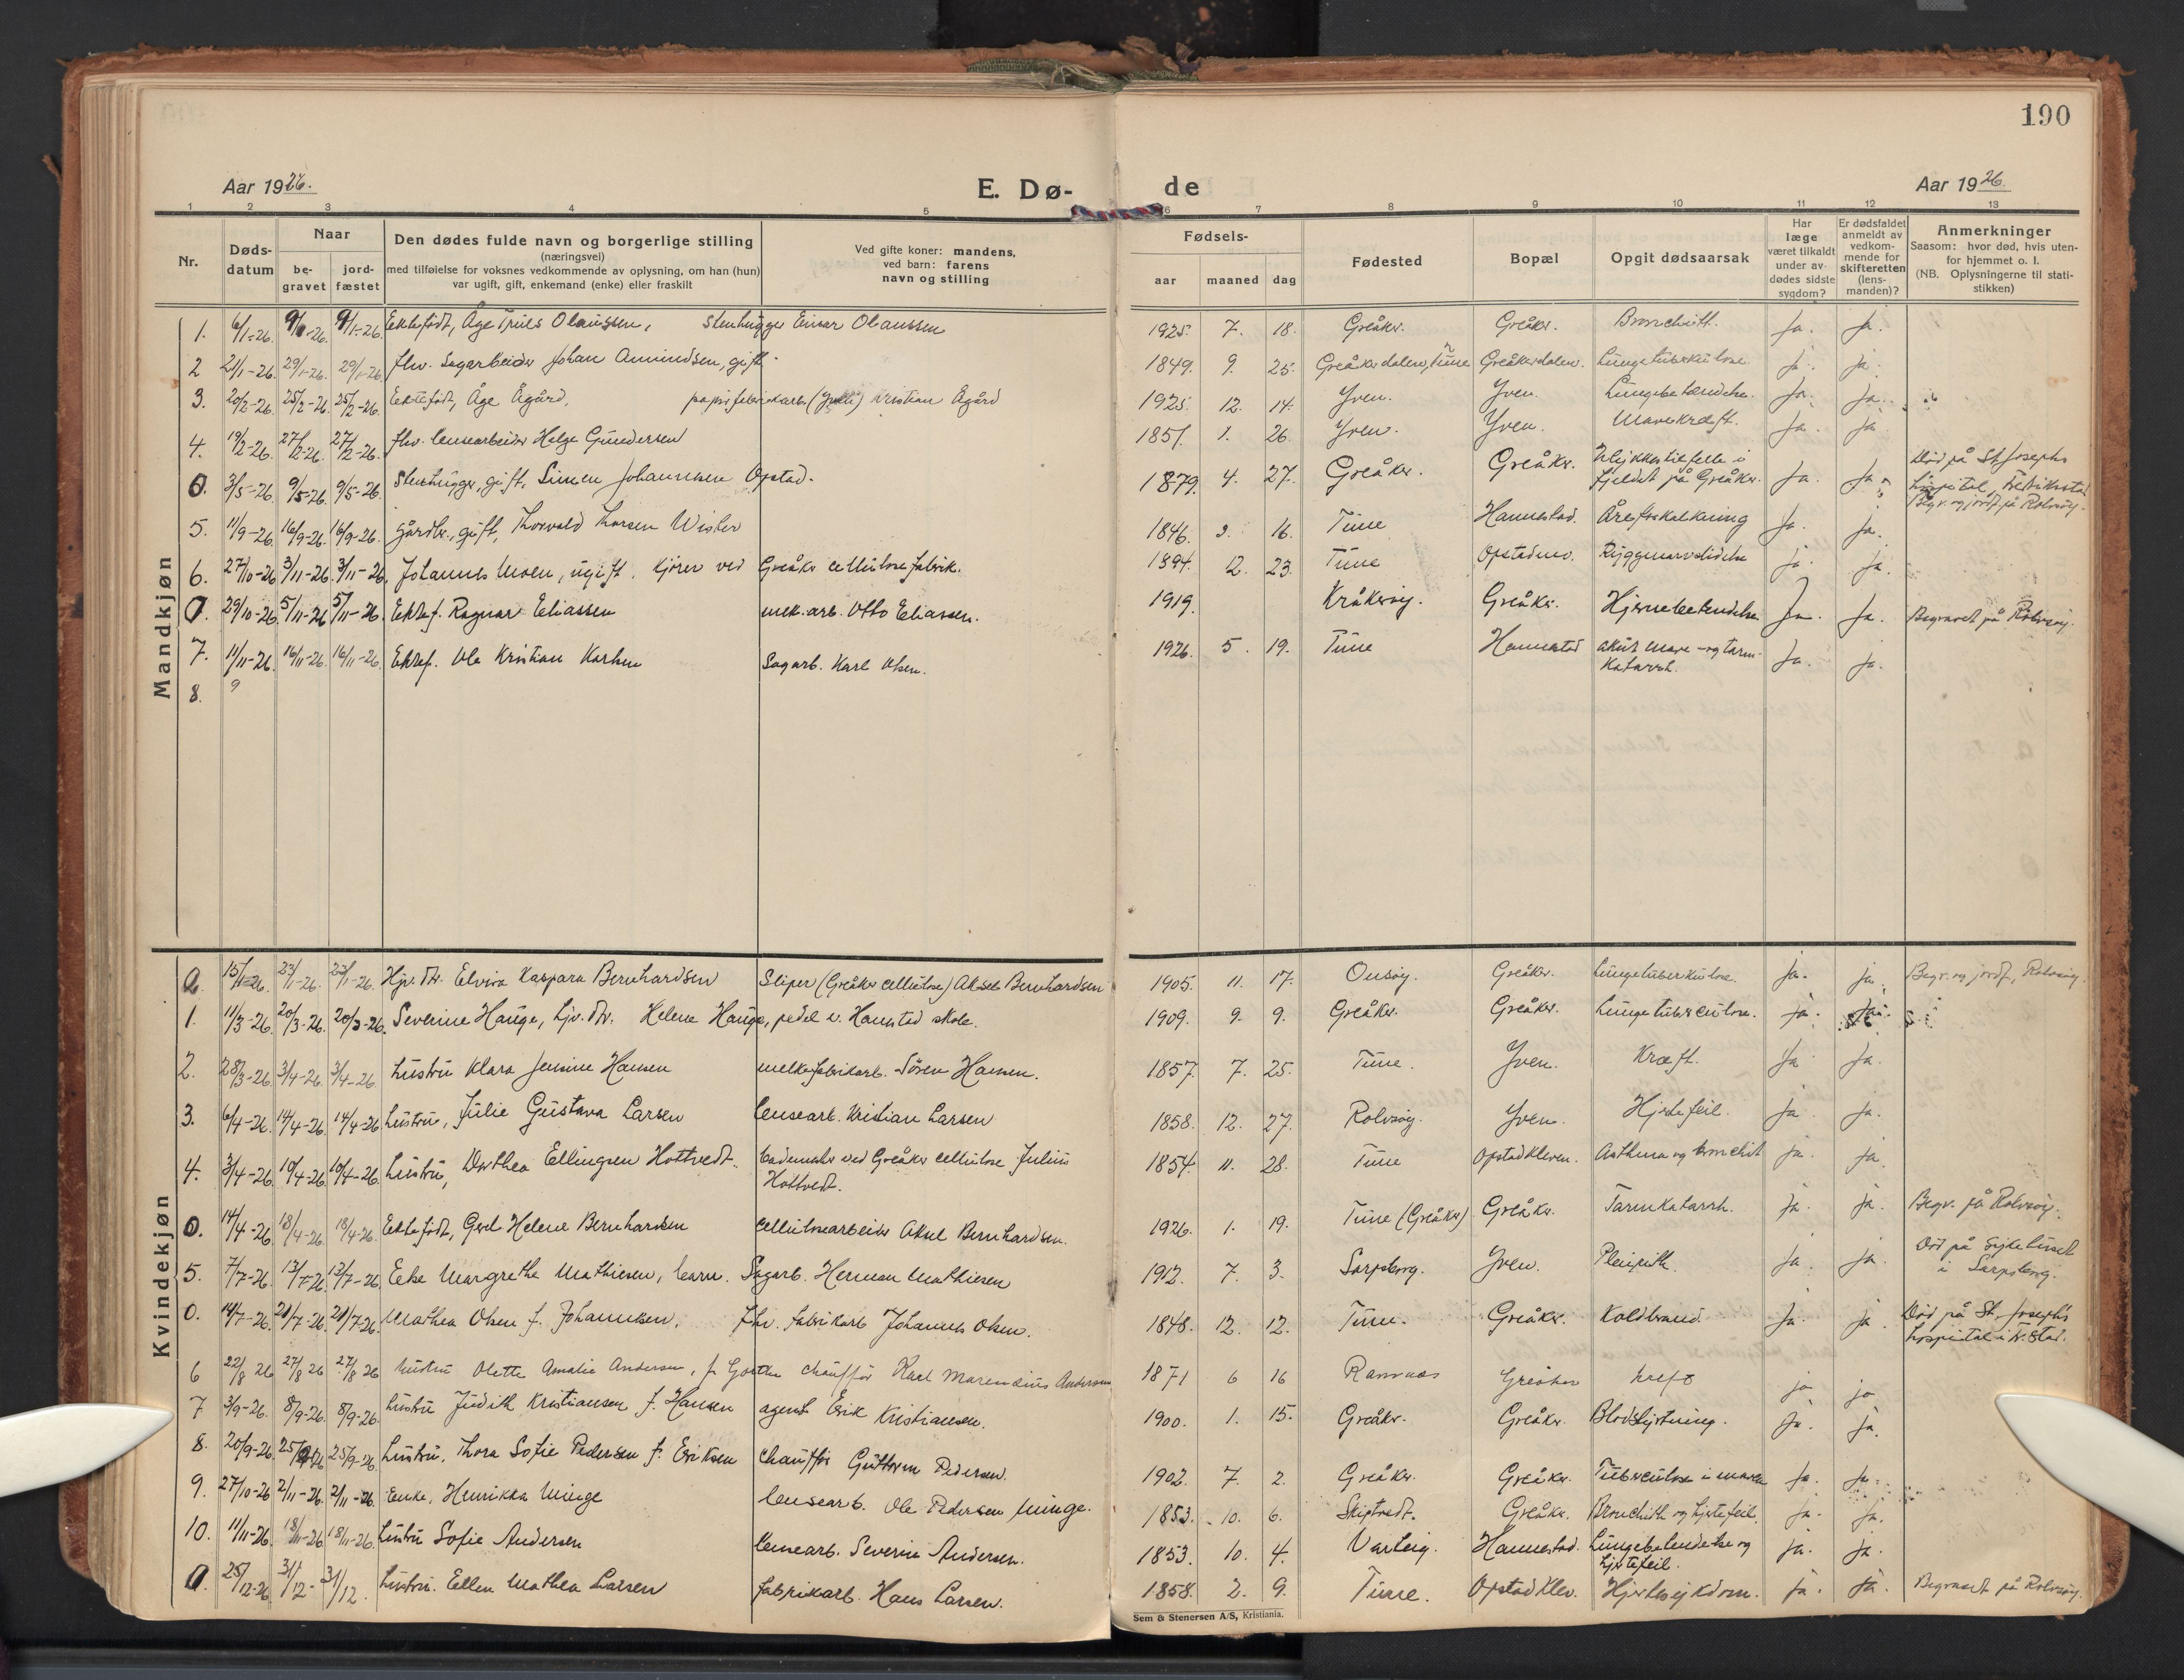 190
Aar 1926.
E. Dø-
de
Aar 1926.
1 2 3 4 5 6 7 8 9 10 11 12 13
Nr.
Døds-
datum
Naar
be-
gravet
jord-
fæstet
Den dødes fulde navn og borgerlige stilling
(næringsvei)
med tilføielse for voksnes vedkommende av oplysning, om han (hun)
var ugift, gift, enkemand (enke) eller fraskilt
Ved gifte koner: mandens,
ved barn: farens
navn og stilling
Fødsels-
aar maaned dag
Fødested
Bopæl
Opgit dødsaarsak
Har
læge
været tilkaldt
under av-
dødes sidste
sygdom?
Er dødsfaldet
anmeldt av
vedkom-
mende for
skifteretten
(lens-
manden)?
Anmerkninger
Saasom: hvor død, hvis uten-
for hjemmet o. l.
(NB. Oplysningerne til stati-
stikken)
Mandkjøn
1. 6/1-26. 9/1-26. 9/1-26. Ektefødt, Åge Truls Olaussen, Stenhugger Einar Olaussen 1925. 7. 18. Greåker. Greåker. Bronchitt. Ja. Ja.
2 21/1-26. 29/1-26. 29/1-26. fhv. Sagarbeider Johan Amundsen, gift. 1849. 9. 25. Greåkerdalen, Tune Greåkerdalen. Lungetuberkulose. ja. ja.
3. 20/2-26. 25/2-26. 25/2-26. Ektefødt, Åge Ågård, papirfabrikarb. Kristian Ågård 1925. 12. 14. Yven. Yven. Lungebetændelse. Ja. Ja.
4. 19/2-26. 27/2-26. 27/2-26. fhv. lensearbeider Helge Gundersen 1851. 1. 26. Yven. Yven. Mavekræft. Ja. Ja
0. 3/5-26. 9/5-26. 9/5-26. Stenhugger, gift, Simen Johannesen Opstad. 1879. 4. 27. Greåker. Greåker. Ulykkestilfelle i
fjeldet på Greåker. Ja. Ja Død på St. Josephs
hospital, Fredrikstad
Begr. og jordf. på Rolvsøy.
5. 11/9-26. 16/9-26. 16/9-26. gårdbr., gift, Thorvald Thorsen Wister 1846. 16. Tune Hannestad. Åreforkalkning Ja. Ja.
6. 27/10-26. 3/11-26. 3/11-26. Johannes Moen, ugift, kjører ved Greåker cellulosefabrik. 1894. 12. 23. Tune Opstadmo. Ryggmarvslidelse ja. ja.
0. 29/10-26. 5/11-26 5/11-26. Ektef. Ragnar Eliassen mek. arb. Otto Eliassen. 1919. Kråkerøy. Greåker. Hjernebetendelse Ja. Ja. Begravet på Rolvsøy.
7. 11/11-26. 16/11-26. 16/11-26. Ektef. Ole Kristian Karlsen Sagarb. Karl Olsen. 1926. 5. 19. Tune Hannestad akut mave- og tarm-
katarrh. Ja. ja.
8. 9
Kvindekjøn
0. 15/1-26. 23/1-26. 23/1-26. Hjv. dtr. Elvira Kaspara Bernhardsen Sliper (Greåker cellulose) Aksel Bernhardsen 1905. 11. 17. Onsøy. Greåker. Lungetuberkulose. Ja. ja. Begr. og jordf. Rolvsøy.
1. 11/3-26. 20/3-26. 20/3-26. Severine Hauge, hjv. dtr. Helene Hauge, pedel v. Hanstad skole. 1909. 9. 9. Greåker. Greåker. Lungetuberculose. ja. ja.
2. 28/3-26. 3/4-26. 3/4-26. Hustru Klara Jensine Hansen melkefabrikarb. Sören Hansen. 1857. 7. 25. Tune. Yven. Kræft. Ja Ja.
3. 6/4-26. 14/4-26. 14/4-26 Hustru, Julie Gustava Larsen lensearb. Kristian Larsen 1858. 12. 27. Rolvsøy. Yven. Hjertefeil. ja ja.
4. 3/4-26. 10/4-26. 10/4-26. Hustru, Dorthea Ellingsen Hottvedt. bademester ved Greåker cellulose Julius
Hottvedt. 1854. 11. 28. Tune Opstadkleven. Asthma og bronchit ja. ja.
0. 14/4-26. 18/4-26. 18/4-26. Ektefødt, Gerd Helene Bernhardsen cellulosearbeider Aksel Bernhardsen. 1926. 1. 19. Tune (Greåker) Greåker. Tarmkatarrh. ja. ja. Begr. på Rolvsøy.
5. 7/7-26. 13/7-26. 13/7-26. Margrethe Mathiesen, barn. Sagarb. Herman Mathiesen 1912. 7. 3. Sarpsborg. Yven. Pleurit. Ja. Ja. Død på Sykehuset
i Sarpsborg.
0. 14/7-26. 21/7-26. 21/7-26. Mathea Olsen f. Johannesen. Fhv. fabrikarb. Johannes Olsen. 1848. 12. 12. Tune. Greåker. Koldbrand. Ja. ja Død på St. Joseph's
hospital i Fr.stad.
6 22/8 26 27/8 26 27/8 26 Hustru Olette Amalie Andersen, chauffør Karl Marendius Andersen 1871 6 16 Greåker kræft ja ja
7 3/9-26. 8/9-26. 8/9-26. Hustru Judith Kristiansen f. Hansen agent Erik Kristiansen. 1900. 1. 15. Greåker. Greåker. Blodstyrtning. Ja. ja.
8. 20/9-26. 25/9-26 25/9-26. Hustru, Thora Sofie Pedersen f. Eriksen chauffør Guttorm Pedersen. 1902. 7. 2. Greåker. Greåker. Tuberculose i maven Ja. Ja.
9. 27/10-26 2/11-26. 2/11-26. Enke, Henrikka Minge lensearb. Ole Pedersen Minge. 1853. 10. 6. Skiptvedt. Greåker. Bronchitt og hjertefeil. Ja. Ja.
10. 11/11-26. 18/11-26 18/11-26. Hustru Sofie Andersen lensearb. Severin Andersen. 1853. 10. 4. Varteig. Hannestad. Lungebetendelse og
hjertefeil. ja. ja.
0. 25/12-26 31/12- 31/12. Hustru. Ellen Mathea Larsen fabrikarb. Hans Larsen. 1858. 2. 9. Tune. Opstadklev. Hjertesykdom. ja. ja. Begravet på Rolvsøy.
Sem & Stenersen A/S, Kristiania.